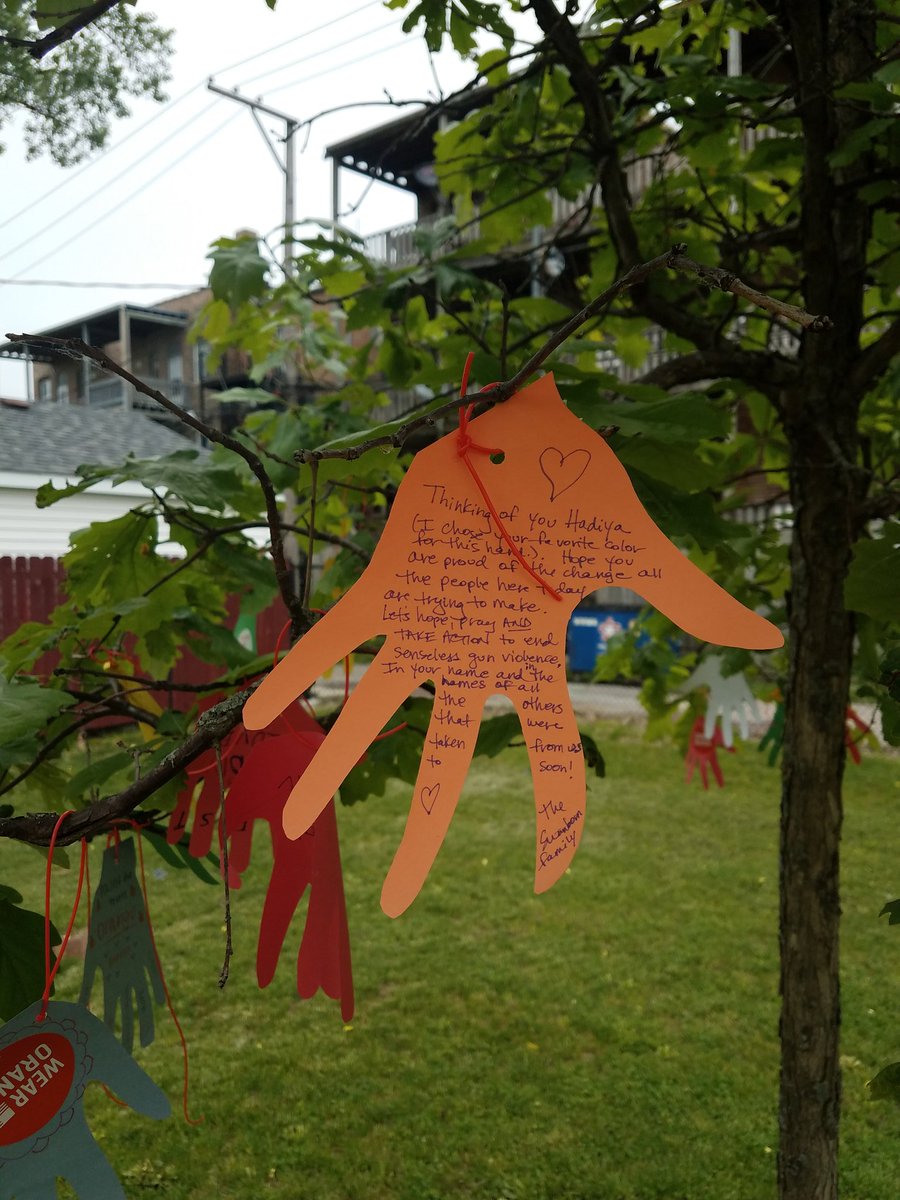 Thinking of you Hadiya
(I chose your favorite color
for this hand.). Hope you
are proud of the change all
the people here today
are trying to make.
Let's hope, pray AND
TAKE ACTION to end
senseless gun violence,
In your name and in the
names of all
the others
that were
taken from us
to soon!
the
family
WEAR
ORAN